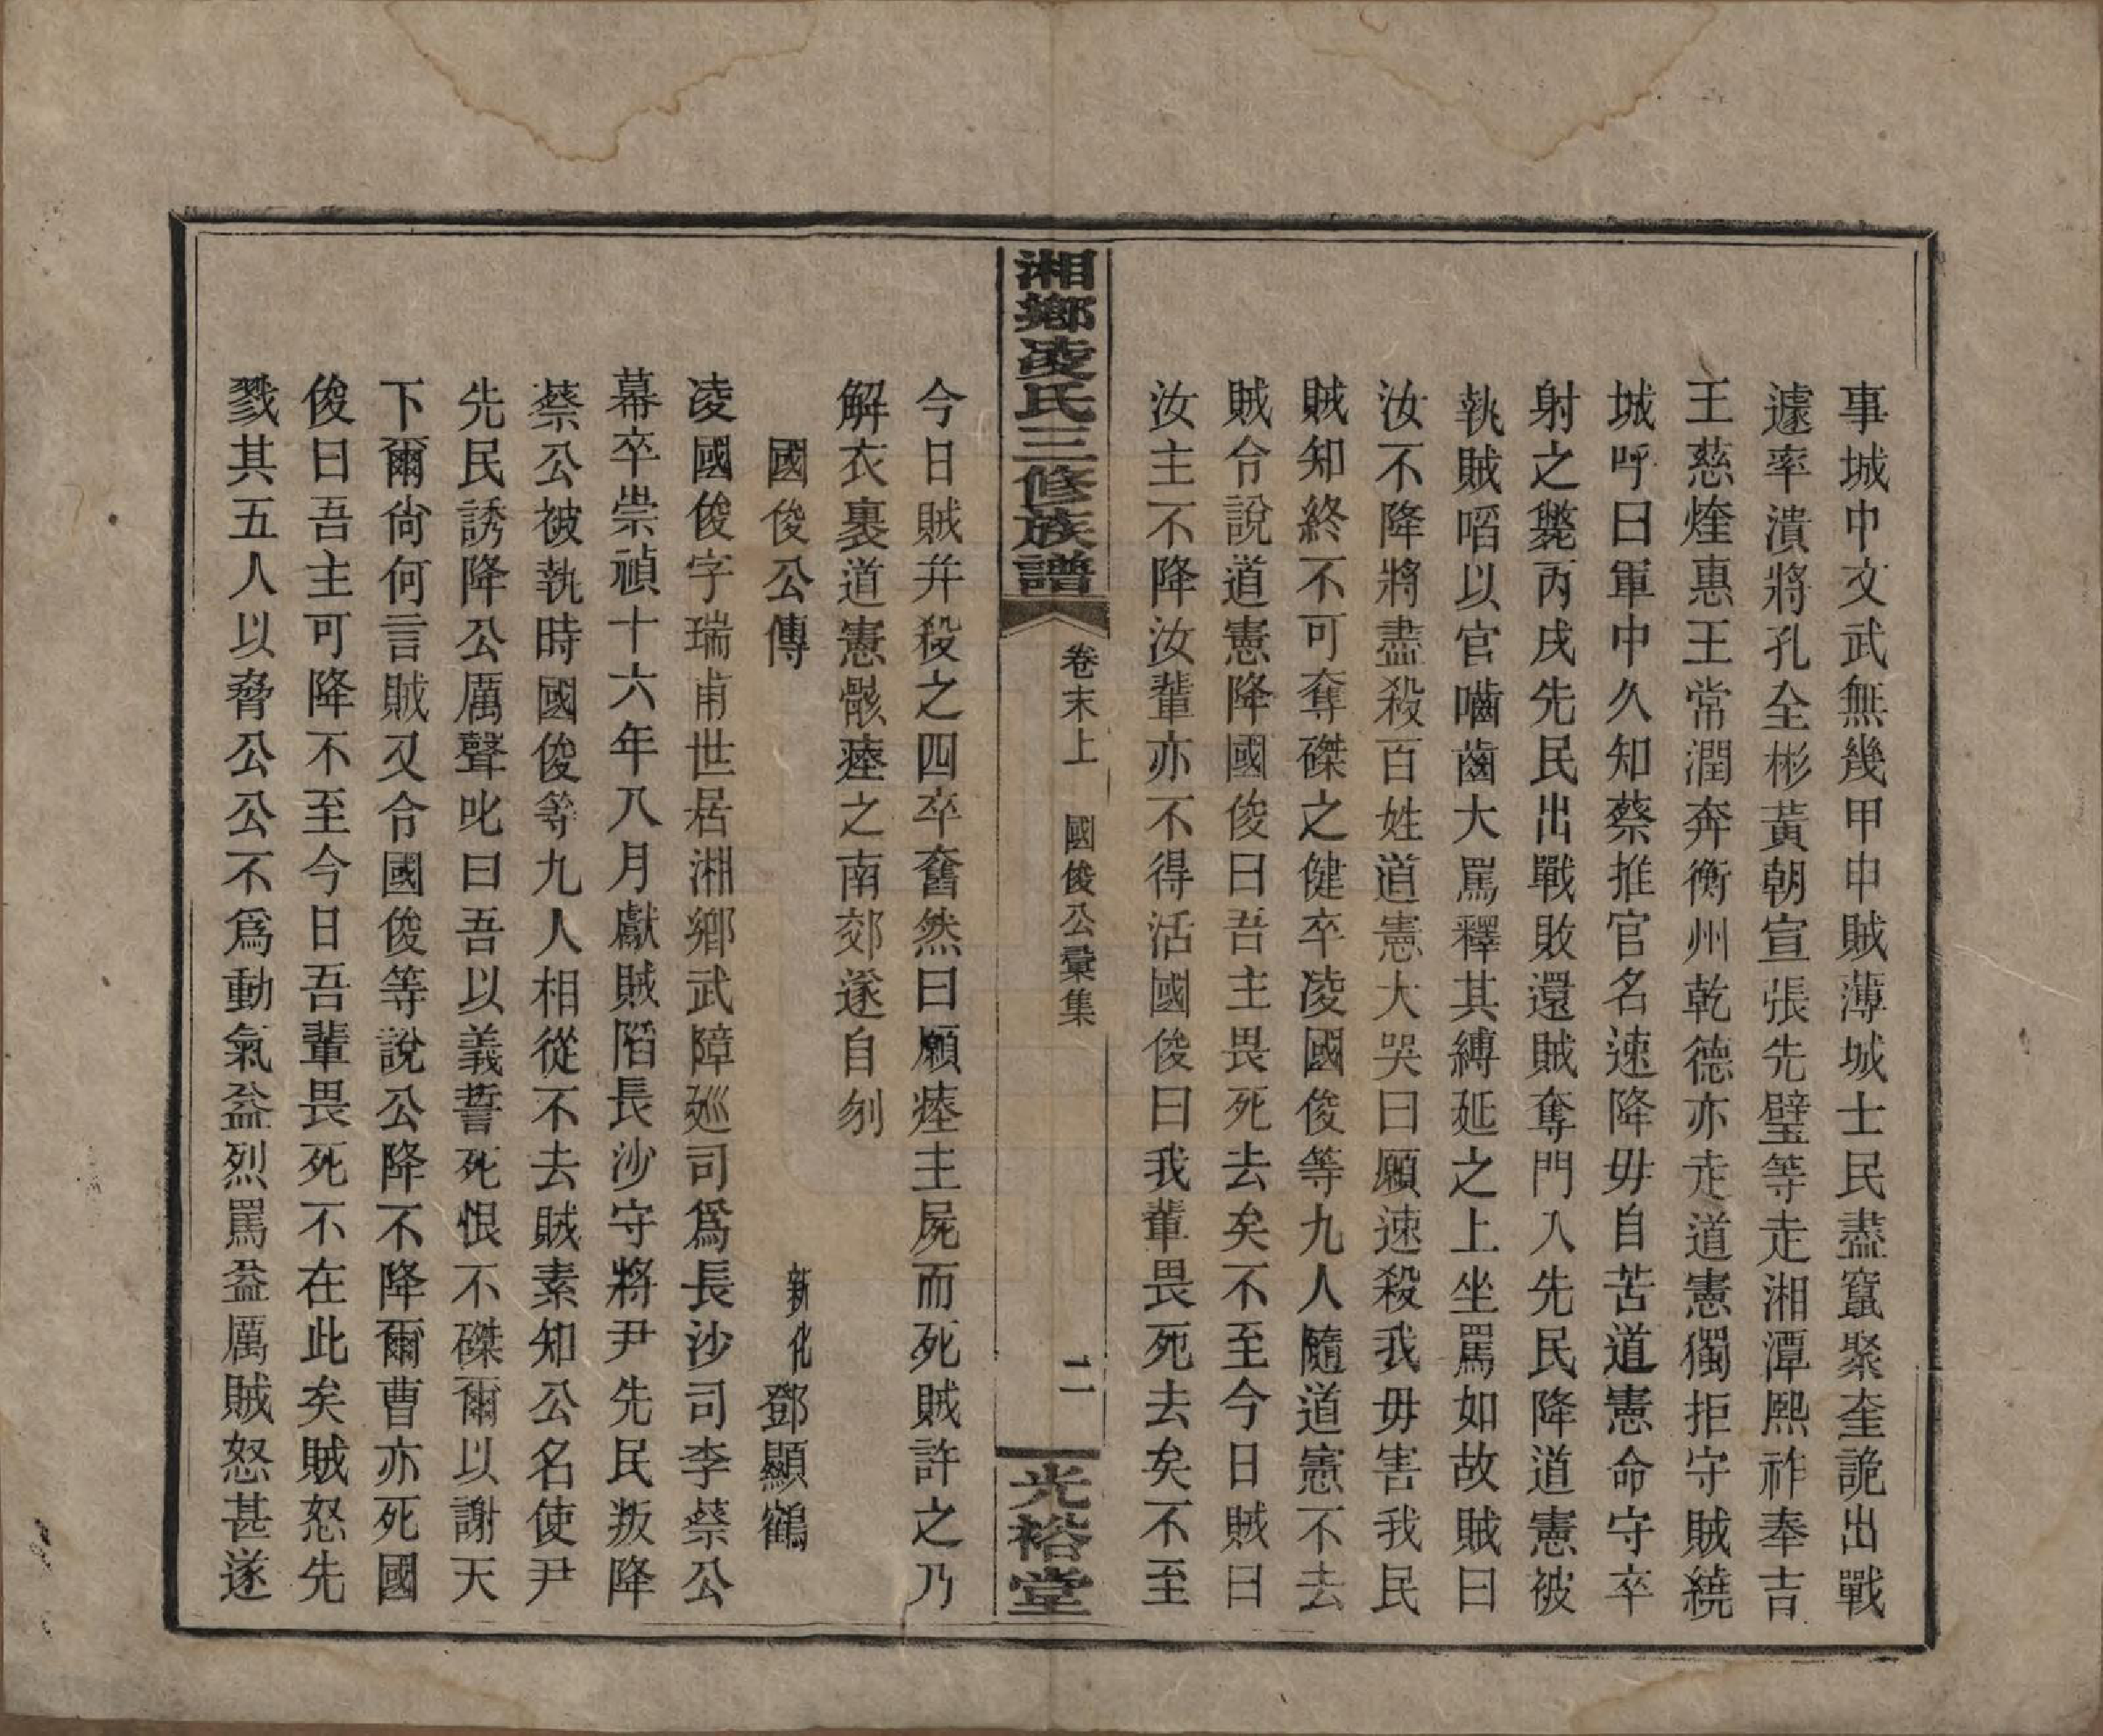 事城中文武無幾甲申賊薄城士民盡竄聚奎詭出戰
遽率潰將孔全彬黃朝宣張先璧等走湘潭熙祚奉吉
王慈煃惠王常潤奔衡州乾德亦走道憲獨拒守賊繞
城呼曰軍中久知蔡推官名速降毋自苦道憲命守卒
射之斃丙戌先民出戰敗還賊奪門入先民降道憲被
執賊啗以官嚙齒大罵釋其縛延之上坐罵如故賊曰
汝不降將盡殺百姓道憲大哭曰願速殺我毋害我民
賊知終不可奪磔之健卒凌國俊等九人隨道憲不去
賊令說道憲降國俊曰吾主畏死去矣不至今日賊曰
汝主不降汝輩亦不得活國俊曰我輩畏死去矣不至
湘鄉凌氏三修族譜
卷末上 國俊公彙集
二
光裕堂
今日賊幷殺之四卒奮然曰願瘞主屍而死賊許之乃
解衣裹道憲骸瘞之南郊遂自刎
國俊公傳
新化鄧顯鶴
凌國俊字瑞甫世居湘鄉武障廵司爲長沙司李蔡公
幕卒崇禎十六年八月獻賊陷長沙守將尹先民叛降
蔡公被執時國俊等九人相從不去賊素知公名使尹
先民誘降公厲聲叱曰吾以義誓死恨不磔爾以謝天
下爾尙何言賊又令國俊等說公降不降爾曹亦死國
俊曰吾主可降不至今日吾輩畏死不在此矣賊怒先
戮其五人以脅公公不爲動氣益烈罵益厲賊怒甚遂